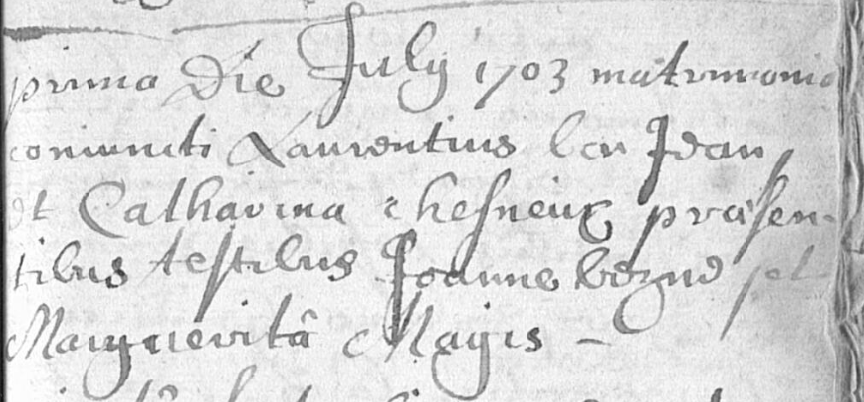 prima die July 1703 matrimonio
coniuncti Laurentius ber Jean
et Catharina chesneux præsen-
tibus testibus Joanne bezne et
Margueritâ Magis -